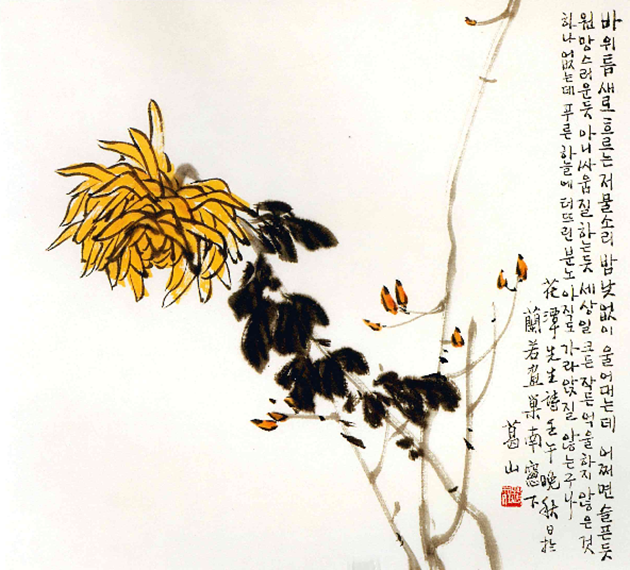 바위틈 새로 흐르는 저 물소리 밤낮없이 울어대는데 어쩌면 슬픈듯
원망스러운듯 아니 싸움질 하는듯 세상일 크든 작든 억울하지 않은 것
하나 없는데 푸른 하늘에 터뜨린 분노 아직도 가라앉질 않는구나
花潭先生詩 壬午晩秋日於
蘭若畫巢南窓下
葛山